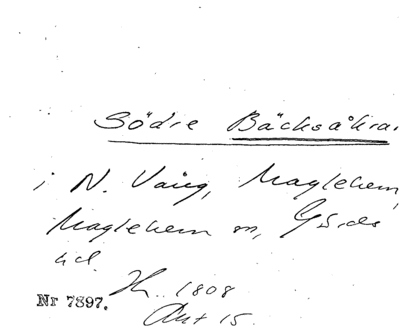 Södre Bäcksåkra.
i N. Vång, Maglehem,
Maglehem sn, Gärds
hd.
Hs. 1808
Nr 7897.
Akt 15.